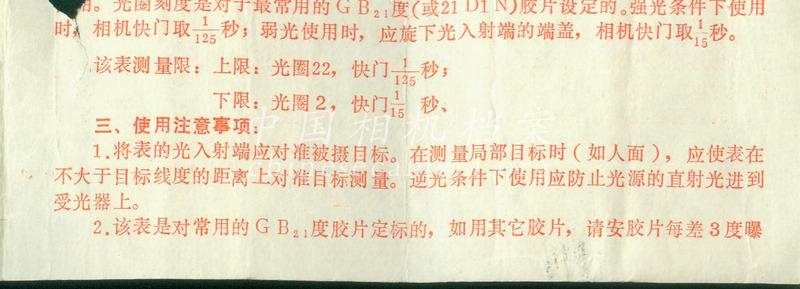 用。光圈刻度是对于最常用的GB₂₁度(或21 D1 N)胶片设定的。强光条件下使用
时，相机快门取1/125秒；弱光使用时，应旋下光入射端的端盖，相机快门取1/15秒。
该表测量限：上限：光圈22，快门1/125秒；
下限：光圈2，快门1/15秒、
三、使用注意事项：
1.将表的光入射端应对准被摄目标。在测量局部目标时(如人面)，应使表在
不大于目标线度的距离上对准目标测量。逆光条件下使用应防止光源的直射光进到
受光器上。
2.该表是对常用的GB₂₁度胶片定标的，如用其它胶片，请安胶片每差3度曝
中国相机档案